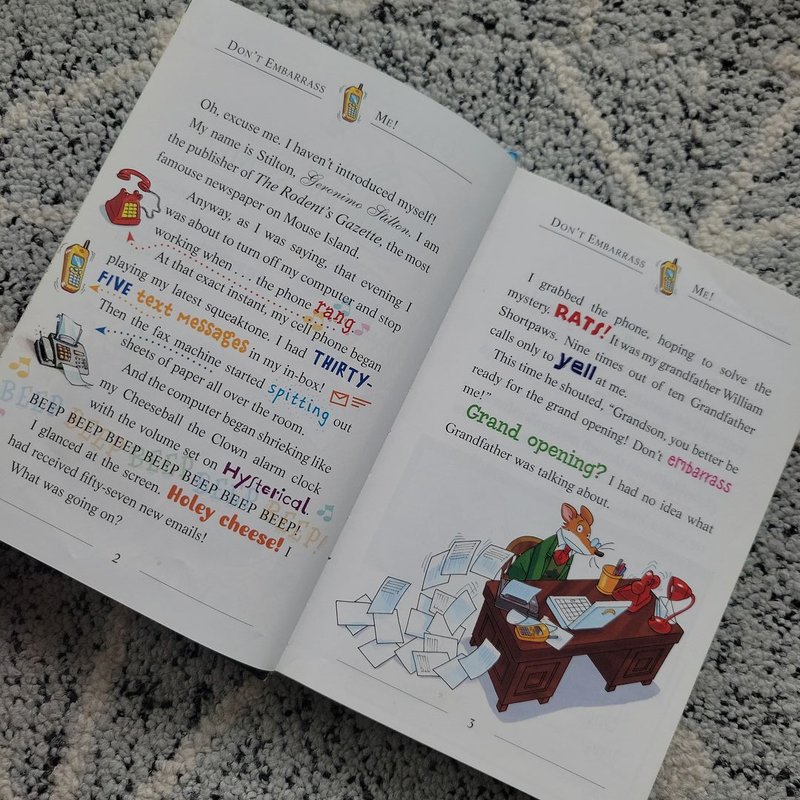 DON'T EMBARRASS ME!
Oh, excuse me. I haven't introduced myself!
My name is Stilton, Geronimo Stilton. I am
the publisher of The Rodent's Gazette, the most
famouse newspaper on Mouse Island.
Anyway, as I was saying, that evening I
was about to turn off my computer and stop
working when . . . the phone rang.
At that exact instant, my cell phone began
playing my latest squeaktone. I had THIRTY-
FIVE text messages in my in-box!
Then the fax machine started spitting out
sheets of paper all over the room.
And the computer began shrieking like
my Cheeseball the Clown alarm clock
with the volume set on Hysterical.
BEEP BEEP BEEP BEEP BEEP BEEP BEEP!
BEEP BEEP BEEP BEEP BEEP!
I glanced at the screen. Holey cheese! I
had received fifty-seven new emails!
What was going on?
2
DON'T EMBARRASS ME!
I grabbed the phone, hoping to solve the
mystery. RATS! It was my grandfather William
Shortpaws. Nine times out of ten Grandfather
calls only to yell at me.
This time he shouted, "Grandson, you better be
ready for the grand opening! Don't embarrass
me!"
Grand opening? I had no idea what
Grandfather was talking about.
3